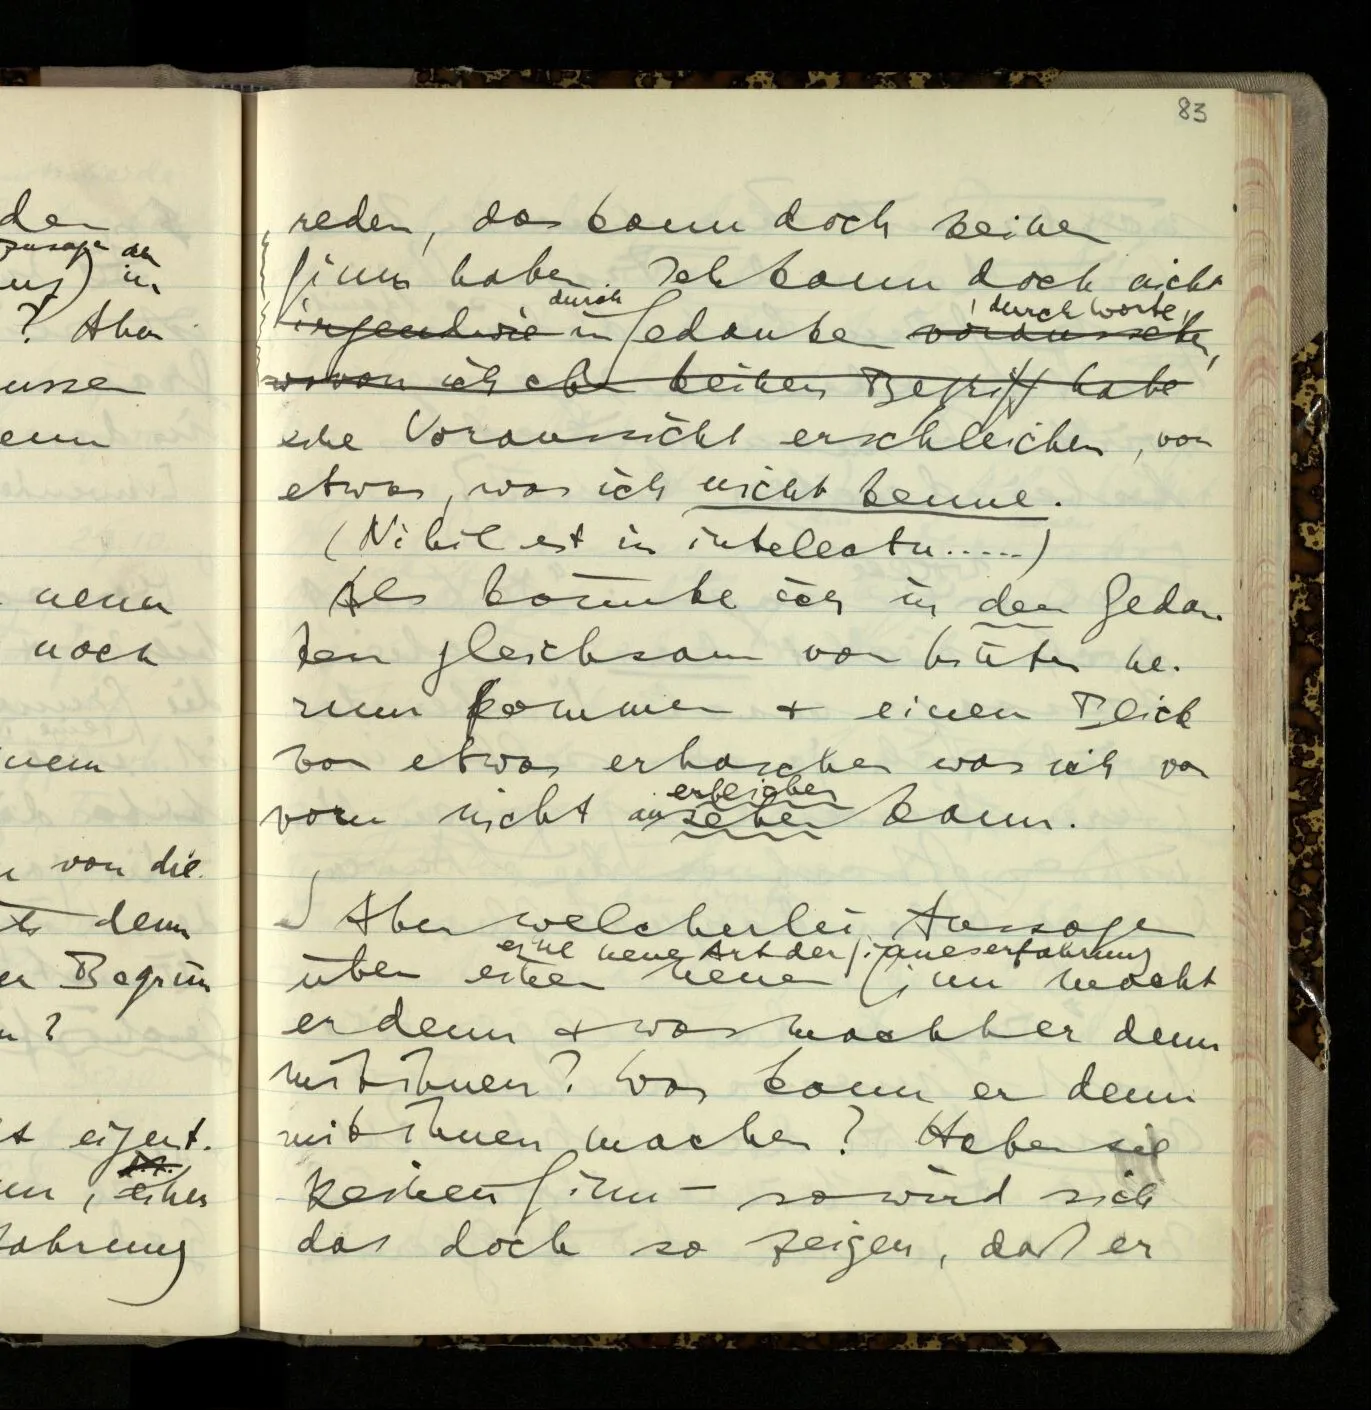 den
zusagen der
in
? Aber
ussen
enn
neuen
noch
inem
von die-
denn
er Begrün
n?
st eigent-
un, eines
fahrung
83
reden, das kann doch keinen
Sinn haben. Ich kann doch nicht
durch durch Worte,
irgendwie in Gedanken voraussehen,
wovon ich eben keinen Begriff habe
eine Voraussicht erschleichen, von
etwas, was ich nicht kenne.
(Nihil est in intelectu.....)
Als könnte ich in den Gedan-
ken gleichsam von hinten he-
rum kommen + einen Blick
von etwas erhaschen was ich von
erblicken
vorn nicht ansehen kann.
Aber welcherlei Aussage
eine neue Art der Sinneserfahrung
über einen neuen Sinn macht
er denn + was macht er denn
mit ihnen? Was kann er denn
mit ihnen machen? Haben sie
keinen Sinn – so wird sich
das doch so zeigen, daß er